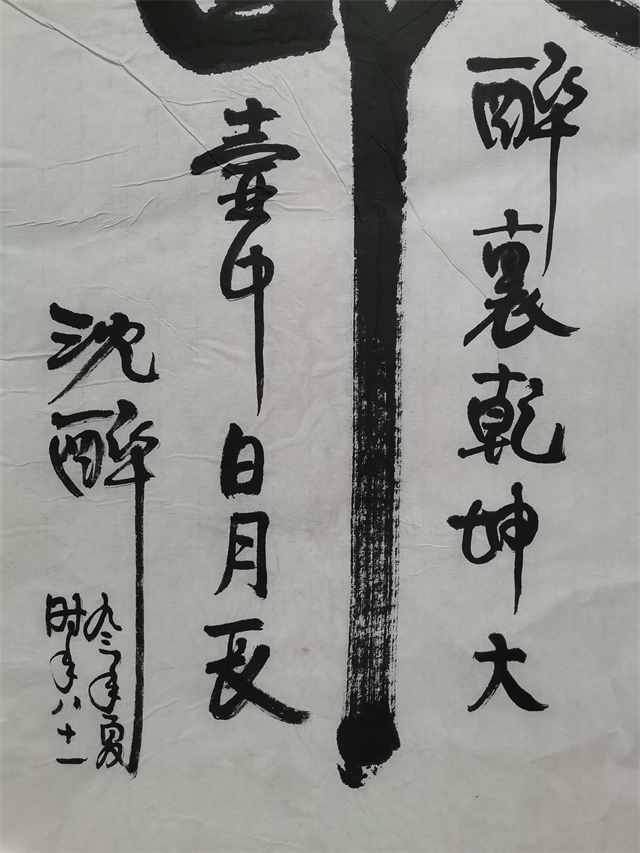 醉裏乾坤大
壺中日月長
沈醉
九三年夏
时年八十一